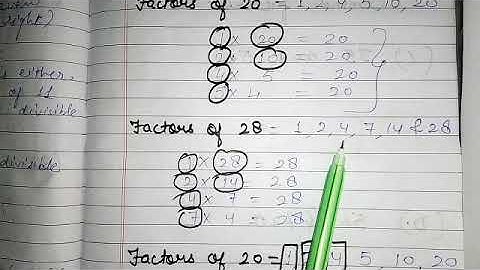 Factors of 20 = 1, 2, 4, 5, 10, 20
right)
1 × 20 = 20
2 × 10 = 20
4 × 5 = 20
5 × 4 = 20
is either
of 11
divisible
Factors of 28 = 1, 2, 4, 7, 14 & 28
divisible
1 × 28 = 28
2 × 14 = 28
4 × 7 = 28
7 × 4 = 28
Factors of 20 = 1 4 5, 10, 20